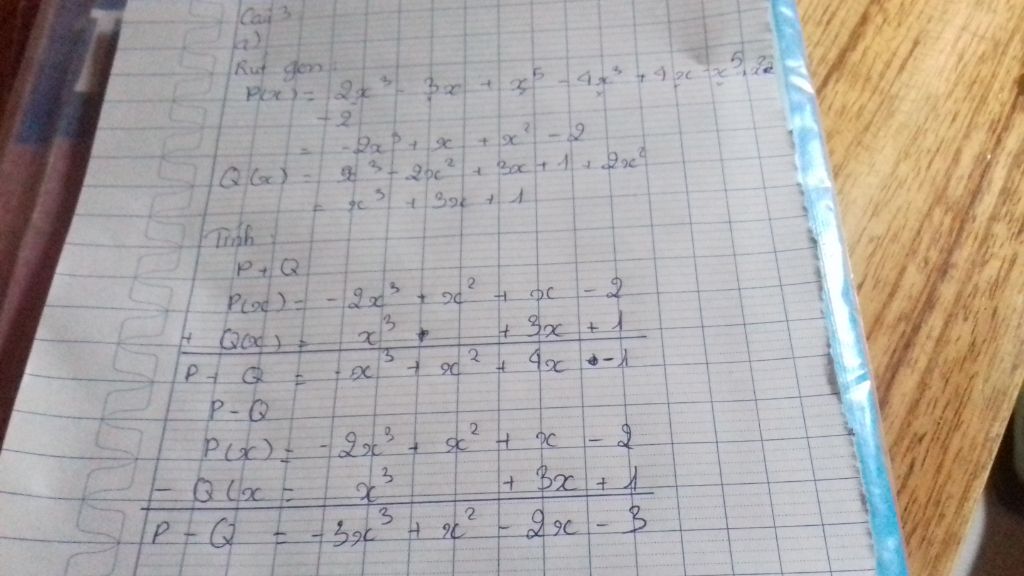 Câu 3
a)
Rút gọn
P(x) = 2x³ - 3x + x⁵ - 4x³ + 4x - x⁵ + x²
- 2
= -2x³ + x + x² - 2
Q(x) = x³ - 2x² + 3x + 1 + 2x²
= x³ + 3x + 1
Tính
P + Q
P(x) = -2x³ + x² + x - 2
+ Q(x) = x³ + 3x + 1
P - Q = -x³ + x² + 4x - 1
P - Q
P(x) = -2x³ + x² + x - 2
- Q(x = x³ + 3x + 1
P - Q = -3x³ + x² - 2x - 3